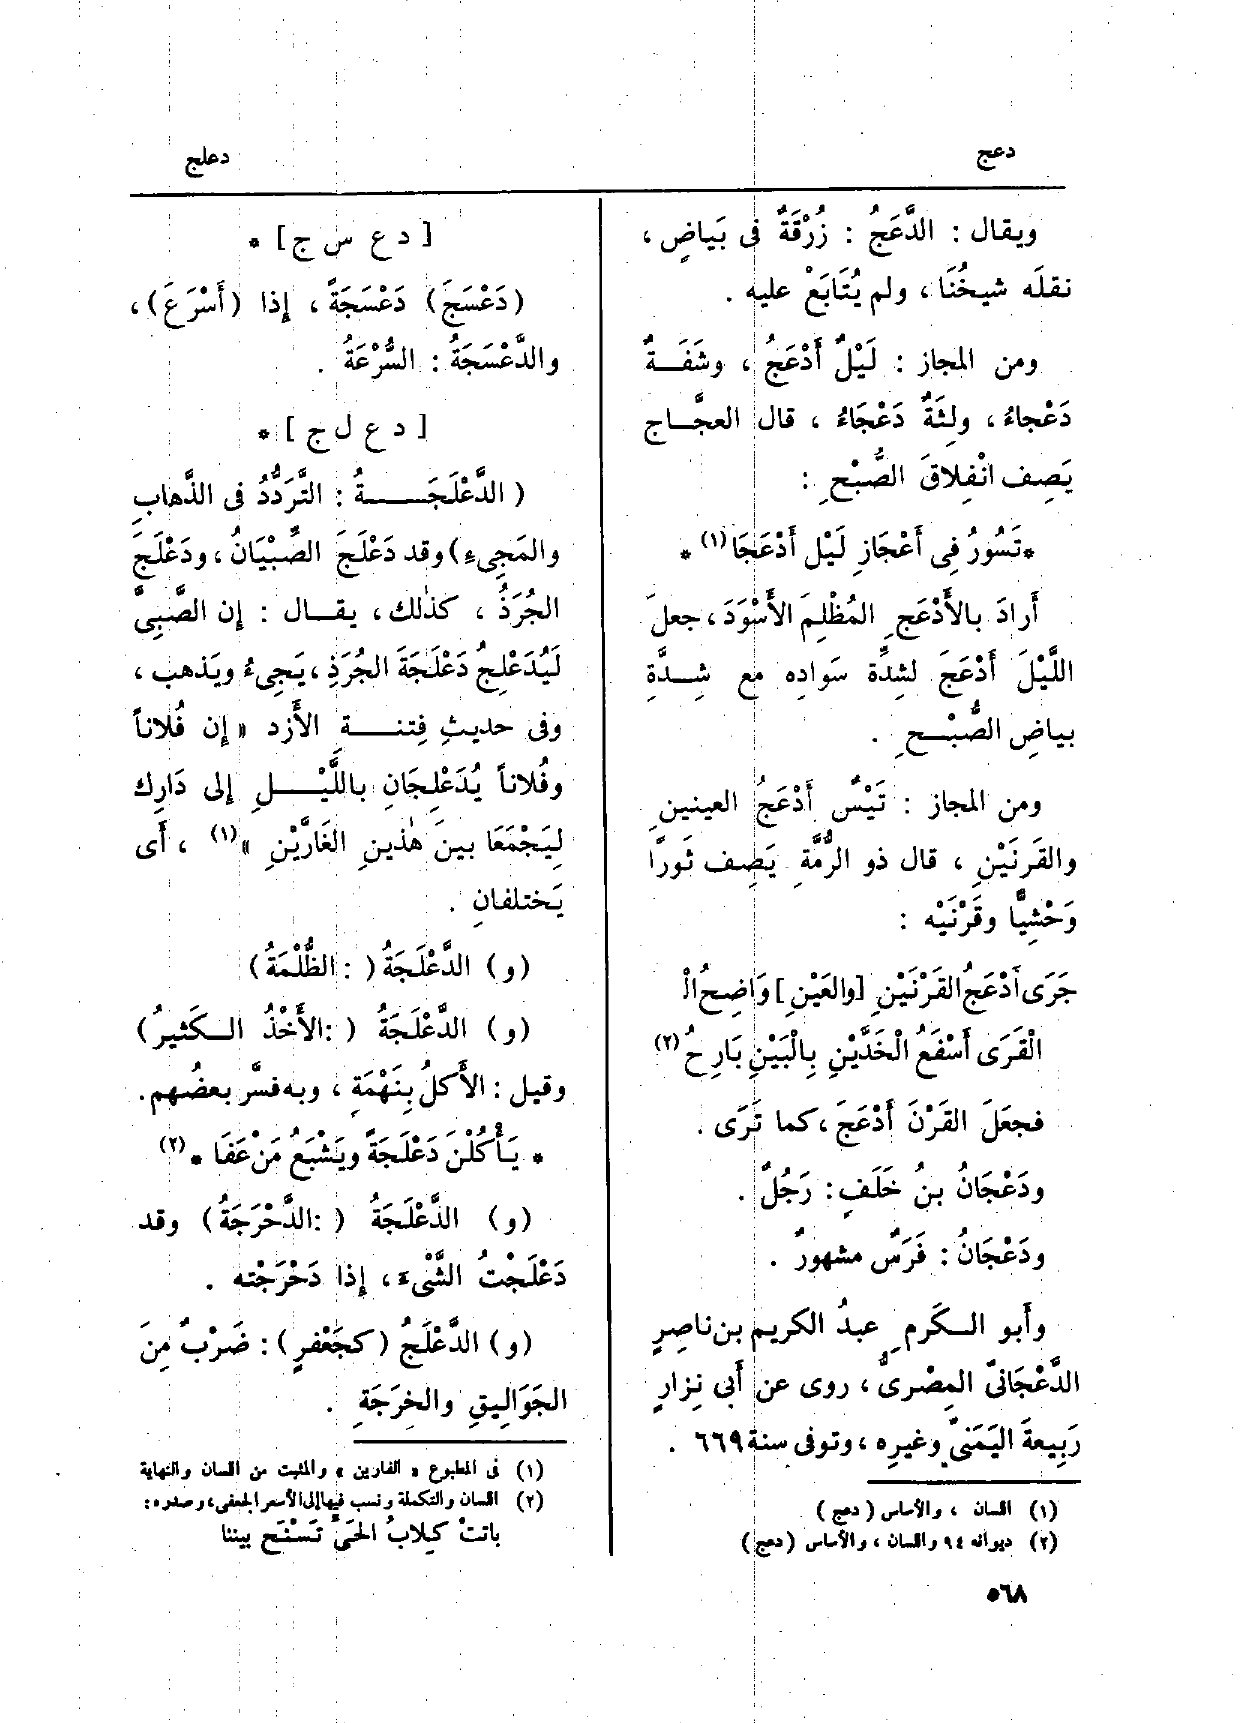 دعج
دعلج
ويقال : الدَّعَجُ : زُرْقَةٌ فى بَياضٍ ،
نقلَه شيخُنَا ، ولم يُتَابَعْ عليه .
ومن المجاز : لَيْلٌ أَدْعَجُ ، وشَفَـةٌ
دَعْجاءُ ، ولِثَةٌ دَعْجَاءُ ، قال العجَّـاج
يَصِف انْفِلاقَ الصُّبْحِ :
*تَسُورُ فِى أَعْجَازِ لَيْلٍ أَدْعَجَا(١) *
أَرادَ بالأَدْعَجِ المُظْلِمَ الأَسْوَدَ ، جعلَ
اللَّيْلَ أَدْعَجَ لشِدَّة سَوادِه مع شِـدَّةِ
بياضِ الصُّبْـحِ .
ومن المجاز : تَيْسٌ أَدْعَجُ العينينِ
والقَرنَيْنِ ، قال ذو الرُّمَّةِ يَصِف ثَورًا
وَحْشِيًّا وقَرْنَيْه :
جَرَى أَدْعَجُ القَرْنَيْنِ [والعَيْنِ] وَاضِحُ الْـ
الْقَرَى أَسْفَعُ الْخَدَّيْنِ بِالْبَيْنِ بَارِحُ (٢)
فجعَلَ القَرْنَ أَدْعَجَ ، كما تَرَى .
ودَعْجَانُ بنُ خَلَفٍ : رَجُلٌ .
ودَعْجَانُ : فَرَسٌ مشهورٌ .
وأَبو الـكَرمِ عبدُ الكريم بن ناصِرٍ
الدَّعْجَانىّ المِصْرىُّ ، روى عن أَبى نِزارٍ
رَبِيعةَ اليَمَنىِّ وغيرِه ، وتوفى سنة ٦٦٩ .
(١) اللسان ، والأساس ( دعج )
(٢) ديوانه ٩٤ واللسان ، والأساس (دعج)
[ د ع س ج ] *
(دَعْسَجَ) دَعْسَجَةً ، إذا (أَسْرَعَ) ،
والدَّعْسَجَةُ : السُّرْعَةُ .
[ د ع ل ج ] *
( الدَّعْلَجَـــةُ : التَّرَدُّدُ فى الذَّهابِ
والمَجِىءِ) وقد دَعْلَجَ الصِّبْيَانُ ، ودَعْلَجَ
الجُرَذُ ، كذٰلك ، يقـال : إن الصَّبِىَّ
لَيُدَعْلِجُ دَعْلَجَةَ الجُرَذِ ، يَجِىءُ ويَذهب ،
وفى حديثِ فِتنـــة الأَزد « إن فُلاناً
وفُلاناً يُدَعْلِجَانِ باللَّيْـــلِ إلى دَارِك
لِيَجْمَعَا بينَ هٰذينِ الغَارَّيْنِ »(١) ، أَى
يَختلفانِ .
(و) الدَّعْلَجَةُ ( : الظُّلْمَةُ)
(و) الدَّعْلَجَةُ ( :الأَخْذُ الـكَثيرُ)
وقيل : الأَكلُ بِنَهْمَةٍ ، وبه فسَّر بعضُهم .
* يَأْكُلْنَ دَعْلَجَةً ويَشْبَعُ مَنْ عَفَا * (٢)
(و) الدَّعْلَجَةُ ( :الدَّحْرَجَةُ) وقد
دَعْلَجْتُ الشَّىْءَ ، إذا دَحْرَجْته .
(و) الدَّعْلَجُ (كجَعْفرٍ) : ضَرْبٌ مِنَ
الجَوَالِيقِ والخِرَجَةِ .
(١) فى المطبوع « الفارين » والمثبت من اللسان والنهاية
(٢) اللسان والتكملة ونسب فيها إلى الأسعر الجعفى ، وصدره :
باتتْ كِلابُ الحَىِّ تَسْنَح بيننا
٥٦٨